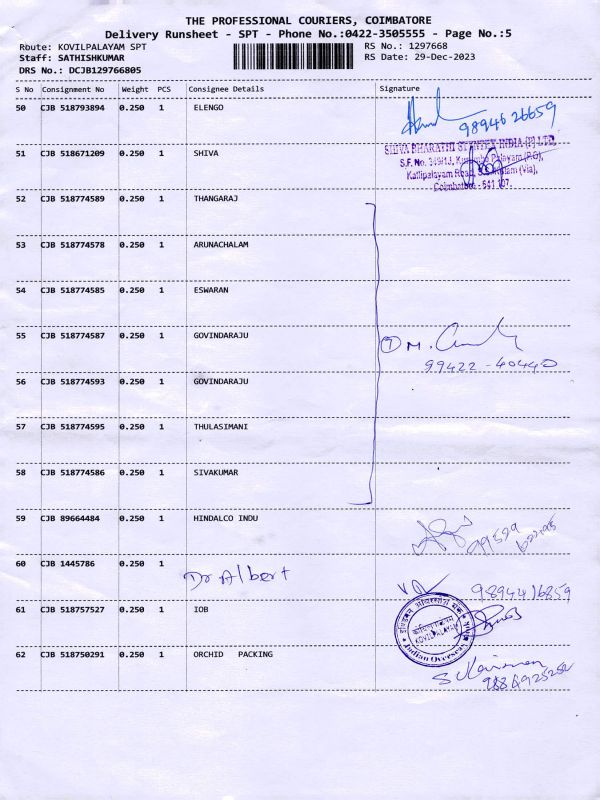 THE PROFESSIONAL COURIERS, COIMBATORE
Delivery Runsheet - SPT - Phone No.:0422-3505555 - Page No.:5
Route: KOVILPALAYAM SPT RS No.: 1297668
Staff: SATHISHKUMAR RS Date: 29-Dec-2023
DRS No.: DCJB129766805
S No Consignment No Weight PCS Consignee Details Signature
50 CJB 518793894 0.250 1 ELENGO
9894626659
51 CJB 518671209 0.250 1 SHIVA
SHIVA BHARATHI INDIA (P) LTD,
S.F. No. Palayam (P.O),
Kattipalayam Road, (Via),
Coimbatore - 641 107.
52 CJB 518774589 0.250 1 THANGARAJ
53 CJB 518774578 0.250 1 ARUNACHALAM
54 CJB 518774585 0.250 1 ESWARAN
55 CJB 518774587 0.250 1 GOVINDARAJU
7 M.
99422-40440
56 CJB 518774593 0.250 1 GOVINDARAJU
57 CJB 518774595 0.250 1 THULASIMANI
58 CJB 518774586 0.250 1 SIVAKUMAR
59 CJB 89664484 0.250 1 HINDALCO INDU
99529
60 CJB 1445786 0.250 1 Dr Albert
9894416859
61 CJB 518757527 0.250 1 IOB
KOVILPALAYAM
Indian Overseas
62 CJB 518750291 0.250 1 ORCHID PACKING